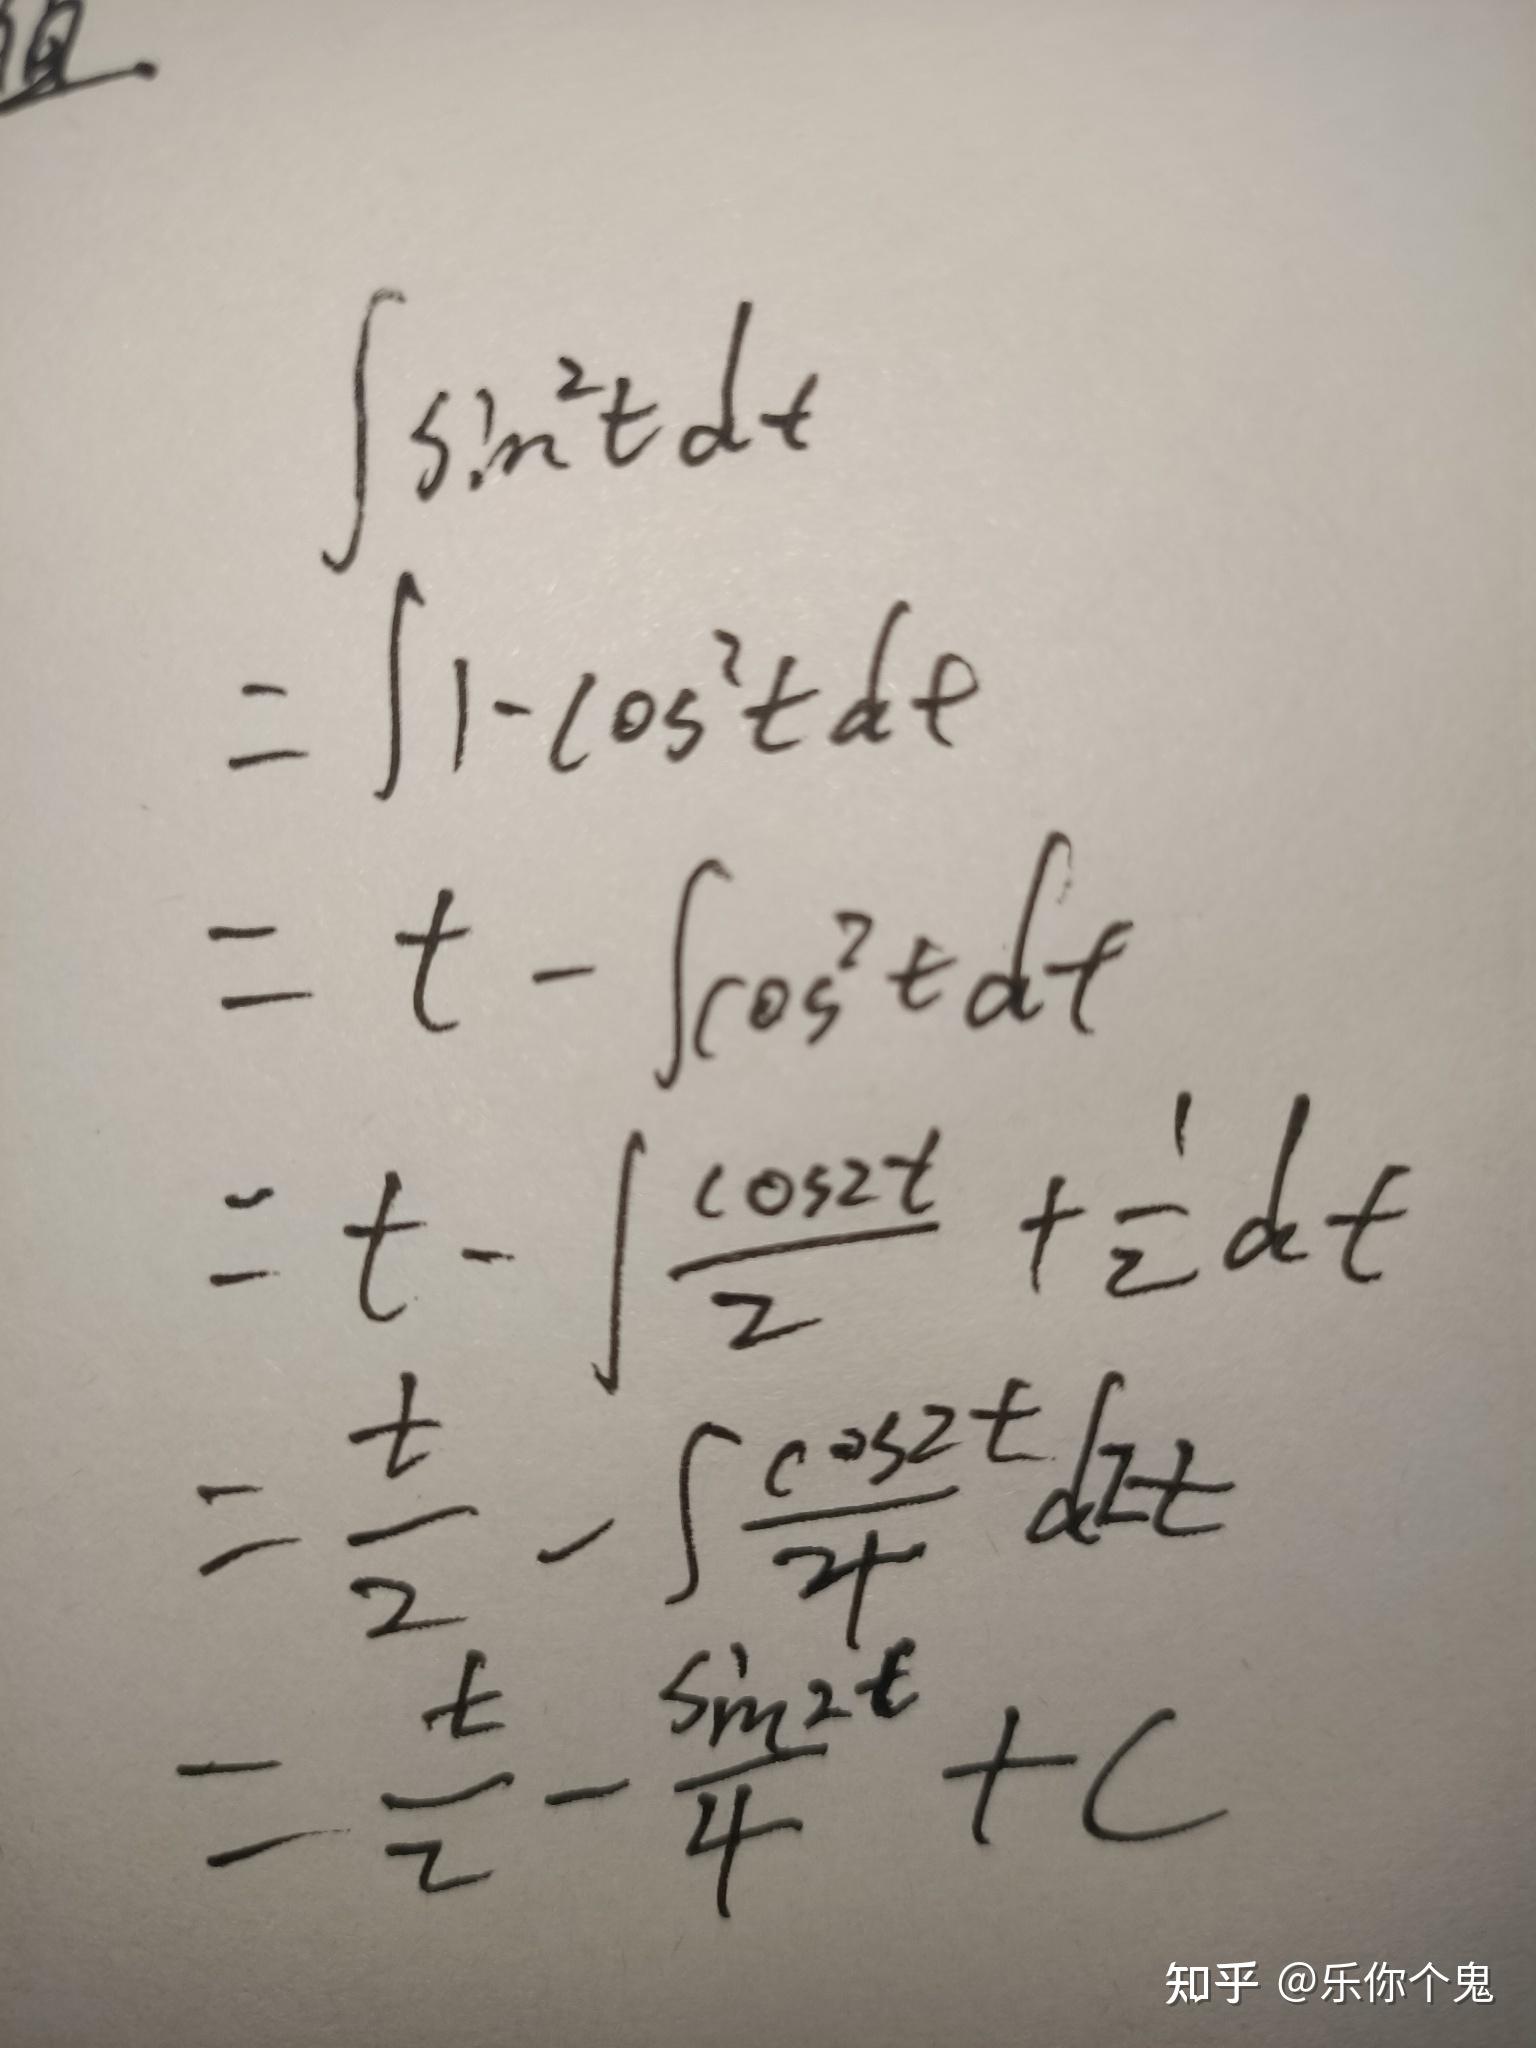 ∫ sin²t dt
= ∫ 1 - cos²t dt
= t - ∫ cos²t dt
= t - ∫ cos2t/2 + 1/2 dt
= t/2 - ∫ cos2t/4 d2t
= t/2 - sin2t/4 + C
知乎 @乐你个鬼